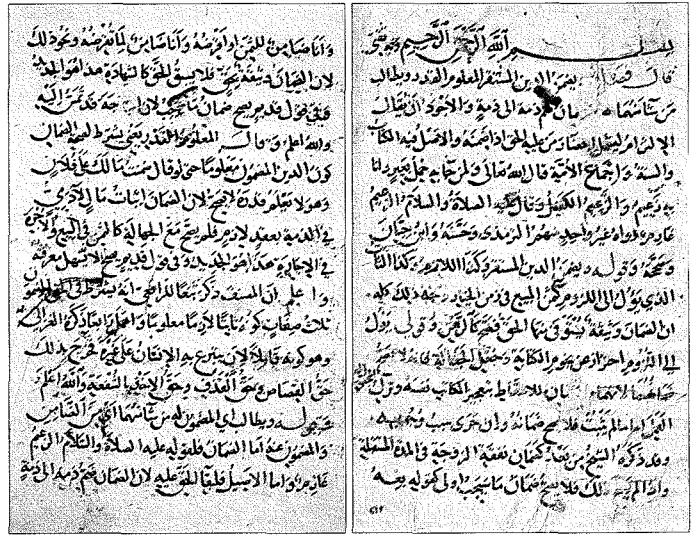 بسم الله الرحمن الرحيم وبه ثقتي
قال فصل يضمن الدين المستقر المعلوم القدر ويطالب
من شاء منهما ضمان ذمة الى ذمة والاجود ان يقال
الالتزام من عليه الحق اذا ضمنه والاصل فيه الكتاب
والسنة واجماع الامة قال الله تعالى ولمن جاء به حمل بعير وانا
به زعيم والزعيم الكفيل وقال عليه الصلاة والسلام الزعيم
غارم رواه غير واحد منهم الترمذي وحسنه وابن حبان
وصححه وقوله يضمن الدين المستقر وكذا اللازم وكذا
الذي يؤول الى اللزوم كثمن المبيع في زمن الخيار ذلك كله
ان الضمان وثيقة يستوفى منها الحق فصح كالرهن وقولي يؤول
الى اللزوم احتراز عن نجوم الكتابة وجعل الجعالة فانه لا يصح
ضمانهما لان للمكاتب اسقاط نجوم الكتابة نفسه وترك
العمل اما ما لم يثبت فلا يصح ضمانه وان جرى سبب وجوبه
وقد ذكره الشيخ من بعد كضمان نفقة الزوجة في المدة المستقبلة
واذا لم يصح ذلك فلا يصح ضمان ما سيجب اولى كقوله بعه
وانا ضامن للثمن او اقرضه وانا ضامن لما تقرضه ونحو ذلك
لان الضمان وثيقة بحق فلا يسبق الحق كالشهادة هذا هو الجديد
وفي قول قديم يصح ضمان ما سيجب لان الحاجة قد تمس اليه
والله اعلم وقال المعلوم القدر يعني يشترط لصحة الضمان
كون الدين المضمون معلوما حتى لو قال ضمنت مالك على فلان
وهو لا يعلم قدره لم يصح لان الضمان اثبات مال لآدمي
في الذمة بعقد لازم فلم يصح مع الجهالة كالثمن في البيع والاجرة
في الاجارة هذا هو الجديد وفي قول قديم يصح لانه تسهل معرفته
واعلم ان المصنف ذكر تبعا للرافعي انه يشترط في الحق المضمون
ثلاث صفات كونه ثابتا لازما معلوما واهمل رابعا ذكره الغزالي
وهو كونه قابلا لان يتبرع به الانسان على غيره فخرج بذلك
حق القصاص وحق القذف وحق الاخذ بالشفعة والله اعلم
وقوله ويطالب اي المضمون له من شاء منهما اي من الضامن
والمضمون عنه اما الضامن فلقوله عليه السلام الزعيم
غارم واما الاصيل فلبقاء الحق عليه لان الضمان ضم ذمة الى ذمة